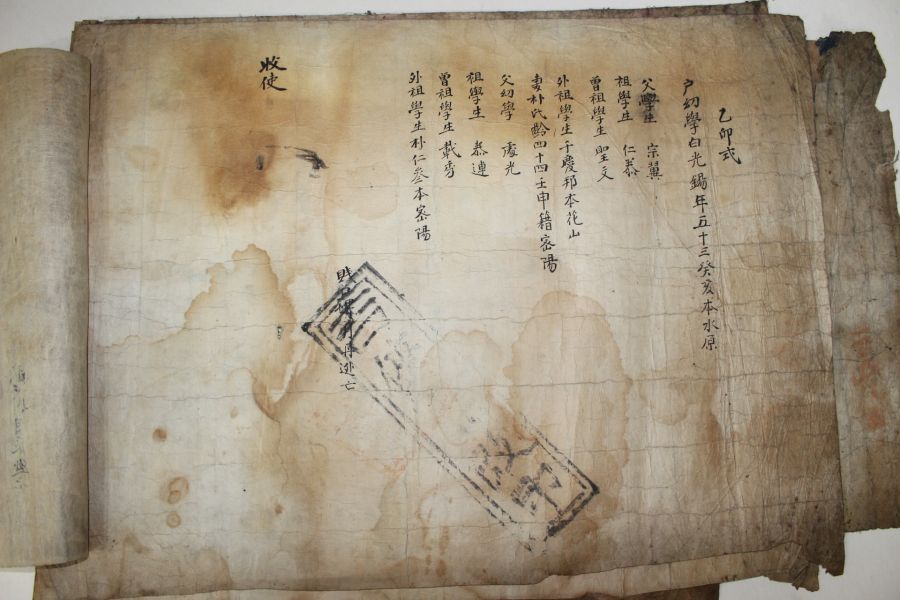 乙卯式
戶幼學白光錫年五十三癸亥本水原
父學生 宗翼
祖學生 仁恭
曾祖學生 聖文
外祖學生于慶邦本花山
妻朴氏齡四十四壬申籍密陽
父幼學 處光
祖學生 泰連
曾祖學生 載秀
外祖學生朴仁叄本密陽
逃亡
牧使